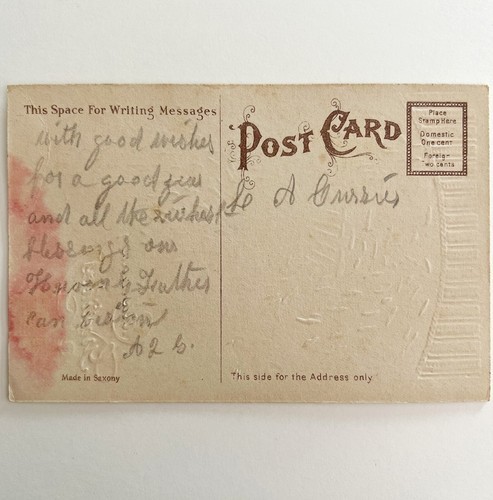 This Space For Writing Messages
with good wishes
for a good year
and all the richest
blessings our
Heavenly Father
can
POST CARD
Place
Stamp Here
Domestic
One cent
Foreign
Two cents
Made in Saxony
This side for the Address only.